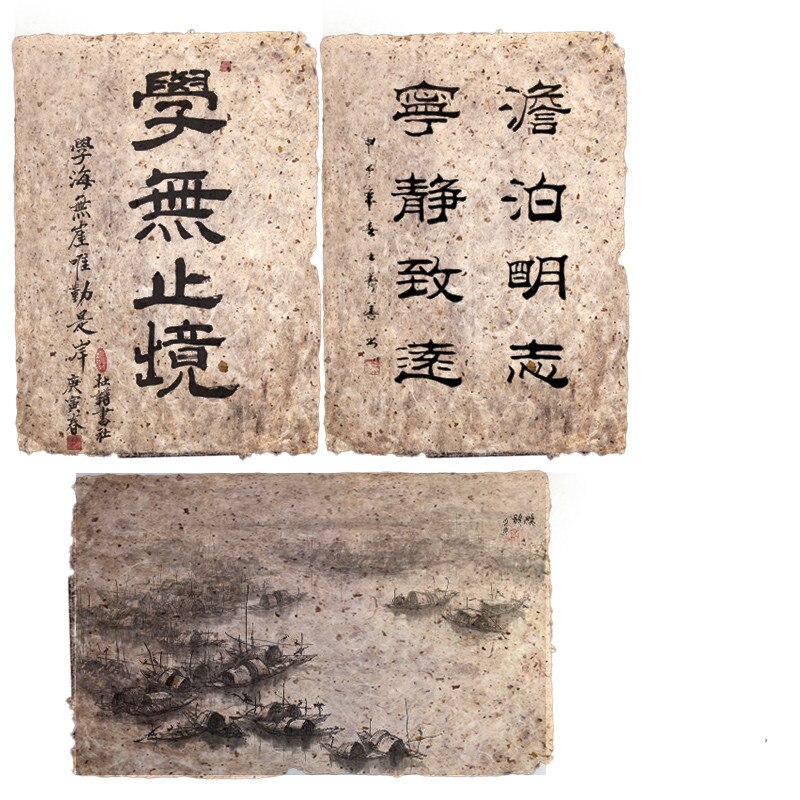 學無止境
學海無崖唯勤是岸
庚寅春
澹泊明志
寧靜致遠